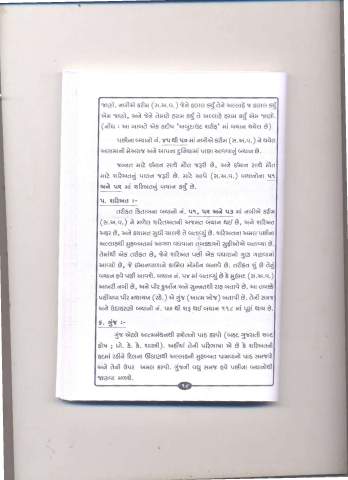 જાણો. નબીએ કરીમ (સ.અ.વ.) જેને હલાલ કર્યું તેને અલ્લાહે જ હલાલ કર્યું
એમ જાણો, અને જેને તેમણે હરામ કર્યું તે અલ્લાહે હરામ કર્યું એમ જાણો.
(નોંધ : આ બાબતે એક હદીષ 'અબુદાઉદ શરીફ' માં બયાન થયેલ છે)
પછીના બયાનો નં. ૪૫ થી ૫૦ માં નબીએ કરીમ (સ.અ.વ.) ને થયેલ
આસમાની મેઅરાજ અને આપના દુનિયામાં પાછા આવવાનું બયાન છે.
જન્નત માટે ઈમાન સાથે મૌત જરૂરી છે, અને ઈમાન સાથે મૌત
માટે શરિઅતનું પાલન જરૂરી છે. માટે આપે (સ.અ.વ.) બયાનોના ૫૧
અને ૫૨ માં શરિઅતનું બયાન કર્યું છે.
૫. શરિઅત :-
તરીકત કિતાબના બયાનો નં. ૫૧, ૫૨ અને ૫૩ માં નબીએ કરીમ
(સ.અ.વ.) ને મળેલ શરિઅતની અઝમત બયાન થઈ છે, અને શરિઅત
અફર છે, અને કયામત સુધી ચાલશે તે બતાવ્યું છે. શરિઅતના અમલ પછીના
અલ્લાહની મુહબ્બતમાં આગળ વધવાના તબક્કાઓ સુફીઓએ બતાવ્યા છે.
તેમાંથી એક તરીકત છે, જેને શરિઅત પછી એક વધારાની ગુણ ગણવામાં
આવ્યો છે, જે ઈમાનવાળાને કામિલ મોમીન બનાવે છે. તરીકત શું છે તેનું
બયાન હવે પછી આવશે. બયાન નં. ૫૪ માં બતાવ્યું છે કે મુહંમદ (સ.અ.વ.)
આખરી નબી છે, અને પીર કુર્આન અને સુન્નતથી રાહ બતાવે છે. આ તબક્કે
પહોંચવા પીર મશાયખ (રહે.) એ ગુંજ (આત્મ ખોજ) બતાવી છે. તેની સમજ
અને ઉદાહરણો બયાનો નં. ૫૭ થી શરૂ થઈ બયાન ૧૧૮ માં પૂરાં થાય છે.
૬. ગુંજ :-
ગુંજ એટલે આત્મમંથનથી રચીતનો પાઠ કરવો (બૃહદ ગુજરાતી શબ્દ
કોષ ; પ્રો. કે. કે. શાસ્ત્રી). અહીંયાં તેની પરિભાષા એ છે કે શરિઅતની
હદમાં રહીને દિલના ઊંડાણથી અલ્લાહની મુહબ્બત પામવાનો પાઠ સમજવો
અને તેની ઉપર અમલ કરવો. ગુંજની વધુ સમજ હવે પછીના બયાનોથી
જાણવા મળશે.